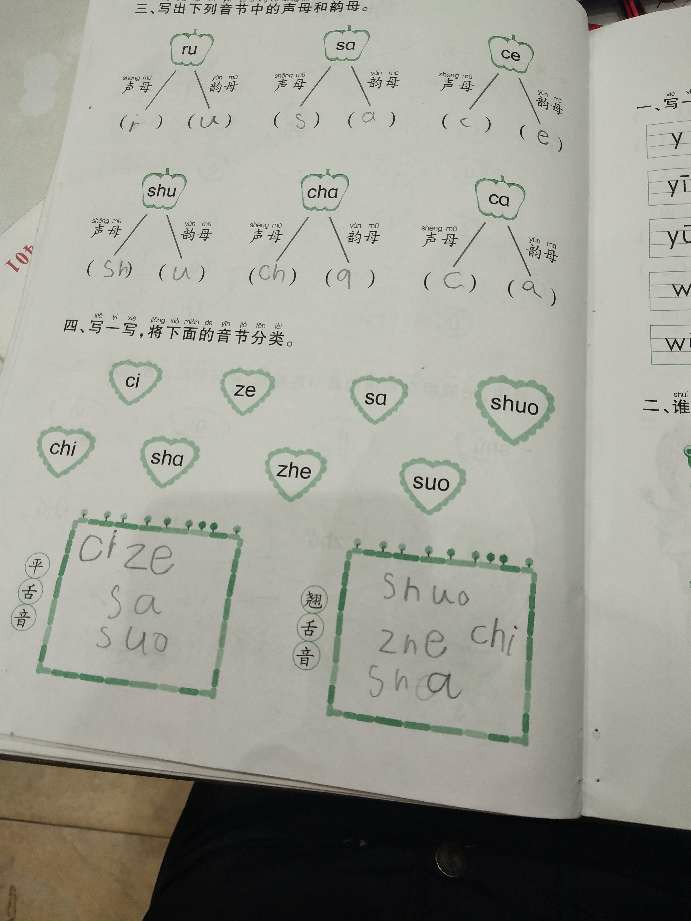 三、写出下列音节中的声母和韵母。
ru sa ce
shēng mǔ yùn mǔ shēng mǔ yùn mǔ shēng mǔ yùn mǔ
声母 韵母 声母 韵母 声母 韵母
(r) (u) (s) (a) (c) (e)
shu cha ca
shēng mǔ yùn mǔ shēng mǔ yùn mǔ shēng mǔ yùn mǔ
声母 韵母 声母 韵母 声母 韵母
(sh) (u) (ch) (a) (c) (a)
xiě yi xiě jiāng xià miàn de yīn jié fēn lèi
四、写一写,将下面的音节分类。
ci ze sa shuo
chi sha zhe suo
平舌音
ci ze
sa
suo
翘舌音
shuo
zhe chi
sha
401
一、写一
y
yī
w
二、谁